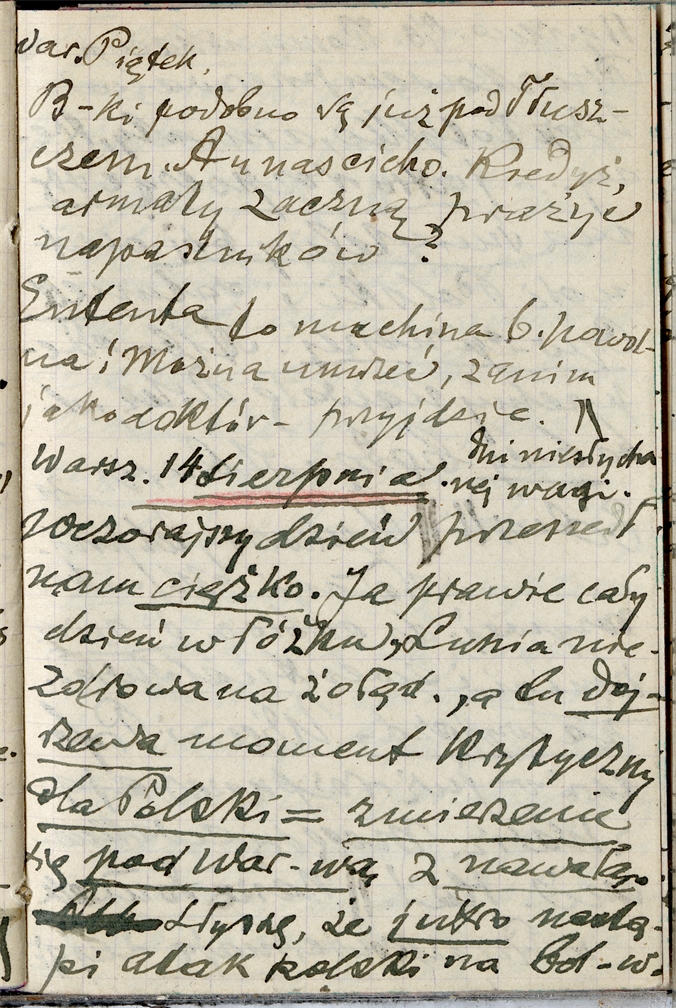 War. Piątek.
B-ki podobno są już pod Tłusz-
czem. A u nas cicho. Kiedyż,
armaty zaczną prażyć
napastników?
Ententa to machina b. powol-
na! Można umrzeć, zanim
jako doktór - przyjdzie.
Warsz. 14 Sierpnia. Dni niesłycha
nej wagi.
Wczorajszy dzień przeszedł
nam ciężko. Ja prawie cały
dzień w łóżku, Lunia nie-
zdrowa na żołąd., a tu doj-
rzewa moment krytyczny
dla Polski = zmierzenie
się pod War-wą z nawałą.
Słyszę, że jutro nastą-
pi atak polski na bol-w.